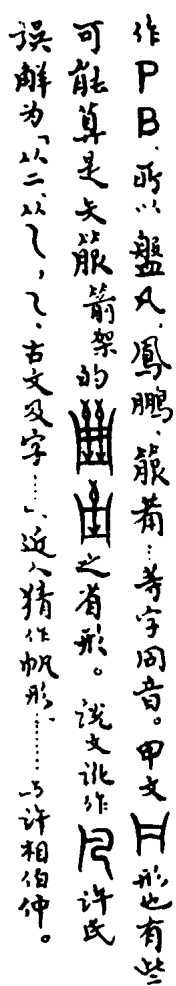 作PB．所以盤凡，鳳鵬、箙葡…等字同音。甲文形也有些
可能算是矢箙箭架的之省形。說文訛作許氏
誤解为「从二，从乁，乁、古文及字……」、近人猜作帆形………与許相伯仲。